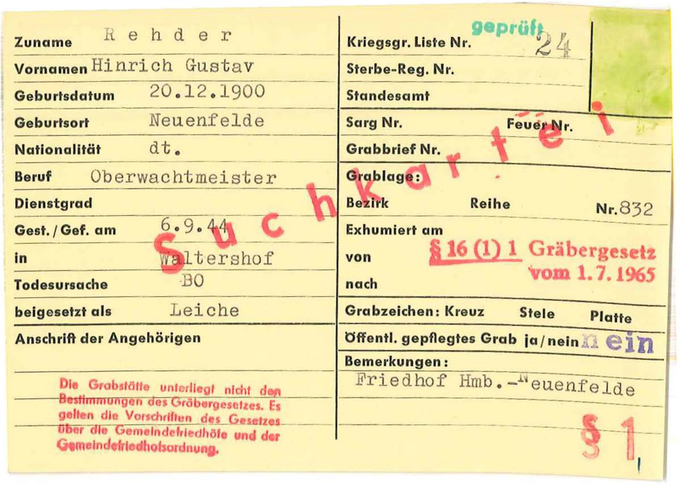 Zuname Rehder
Vornamen Hinrich Gustav
Geburtsdatum 20.12.1900
Geburtsort Neuenfelde
Nationalität dt.
Beruf Oberwachtmeister
Dienstgrad
Gest./Gef. am 6.9.44
in Waltershof
Todesursache BO
beigesetzt als Leiche
Anschrift der Angehörigen
Die Grabstätte unterliegt nicht den
Bestimmungen des Gräbergesetzes. Es
gelten die Vorschriften des Gesetzes
über die Gemeindefriedhöfe und der
Gemeindefriedhofsordnung.
Suchkartei
geprüft
Kriegsgr. Liste Nr. 24
Sterbe-Reg. Nr.
Standesamt
Sarg Nr. Feuer Nr.
Grabbrief Nr.
Grablage:
Bezirk Reihe Nr. 832
Exhumiert am
von
nach
§ 16 (1) 1 Gräbergesetz
vom 1.7.1965
Grabzeichen: Kreuz Stele Platte
Öffentl. gepflegtes Grab ja/nein nein
Bemerkungen:
Friedhof Hmb.-Neuenfelde
§ 1